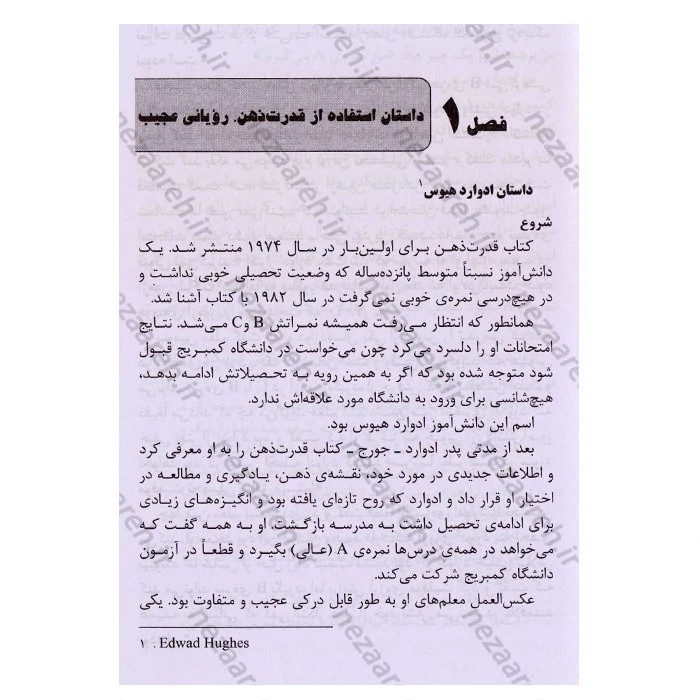 فصل ۱ داستان استفاده از قدرت‌ذهن. رؤیائی عجیب
داستان ادوارد هیوس۱
شروع
کتاب قدرت‌ذهن برای اولین‌بار در سال ۱۹۷۴ منتشر شد. یک
دانش‌آموز نسبتاً متوسط پانزده‌ساله که وضعیت تحصیلی خوبی نداشت و
در هیچ‌درسی نمره‌ی خوبی نمی‌گرفت در سال ۱۹۸۲ با کتاب آشنا شد.
همانطور که انتظار می‌رفت همیشه نمراتش B و C می‌شد. نتایج
امتحانات او را دلسرد می‌کرد چون می‌خواست در دانشگاه کمبریج قبول
شود متوجه شده بود که اگر به همین رویه به تحصیلاتش ادامه بدهد،
هیچ‌شانسی برای ورود به دانشگاه مورد علاقه‌اش ندارد.
اسم این دانش‌آموز ادوارد هیوس بود.
بعد از مدتی پدر ادوارد ـ جورج ـ کتاب قدرت‌ذهن را به او معرفی کرد
و اطلاعات جدیدی در مورد خود، نقشه‌ی ذهن، یادگیری و مطالعه در
اختیار او قرار داد و ادوارد که روح تازه‌ای یافته بود و انگیزه‌های زیادی
برای ادامه‌ی تحصیل داشت به مدرسه بازگشت. او به همه گفت که
می‌خواهد در همه‌ی درس‌ها نمره‌ی A (عالی) بگیرد و قطعاً در آزمون
دانشگاه کمبریج شرکت می‌کند.
عکس‌العمل معلم‌های او به طور قابل درکی عجیب و متفاوت بود. یکی
۱ . Edwad Hughes
nezaareh.ir